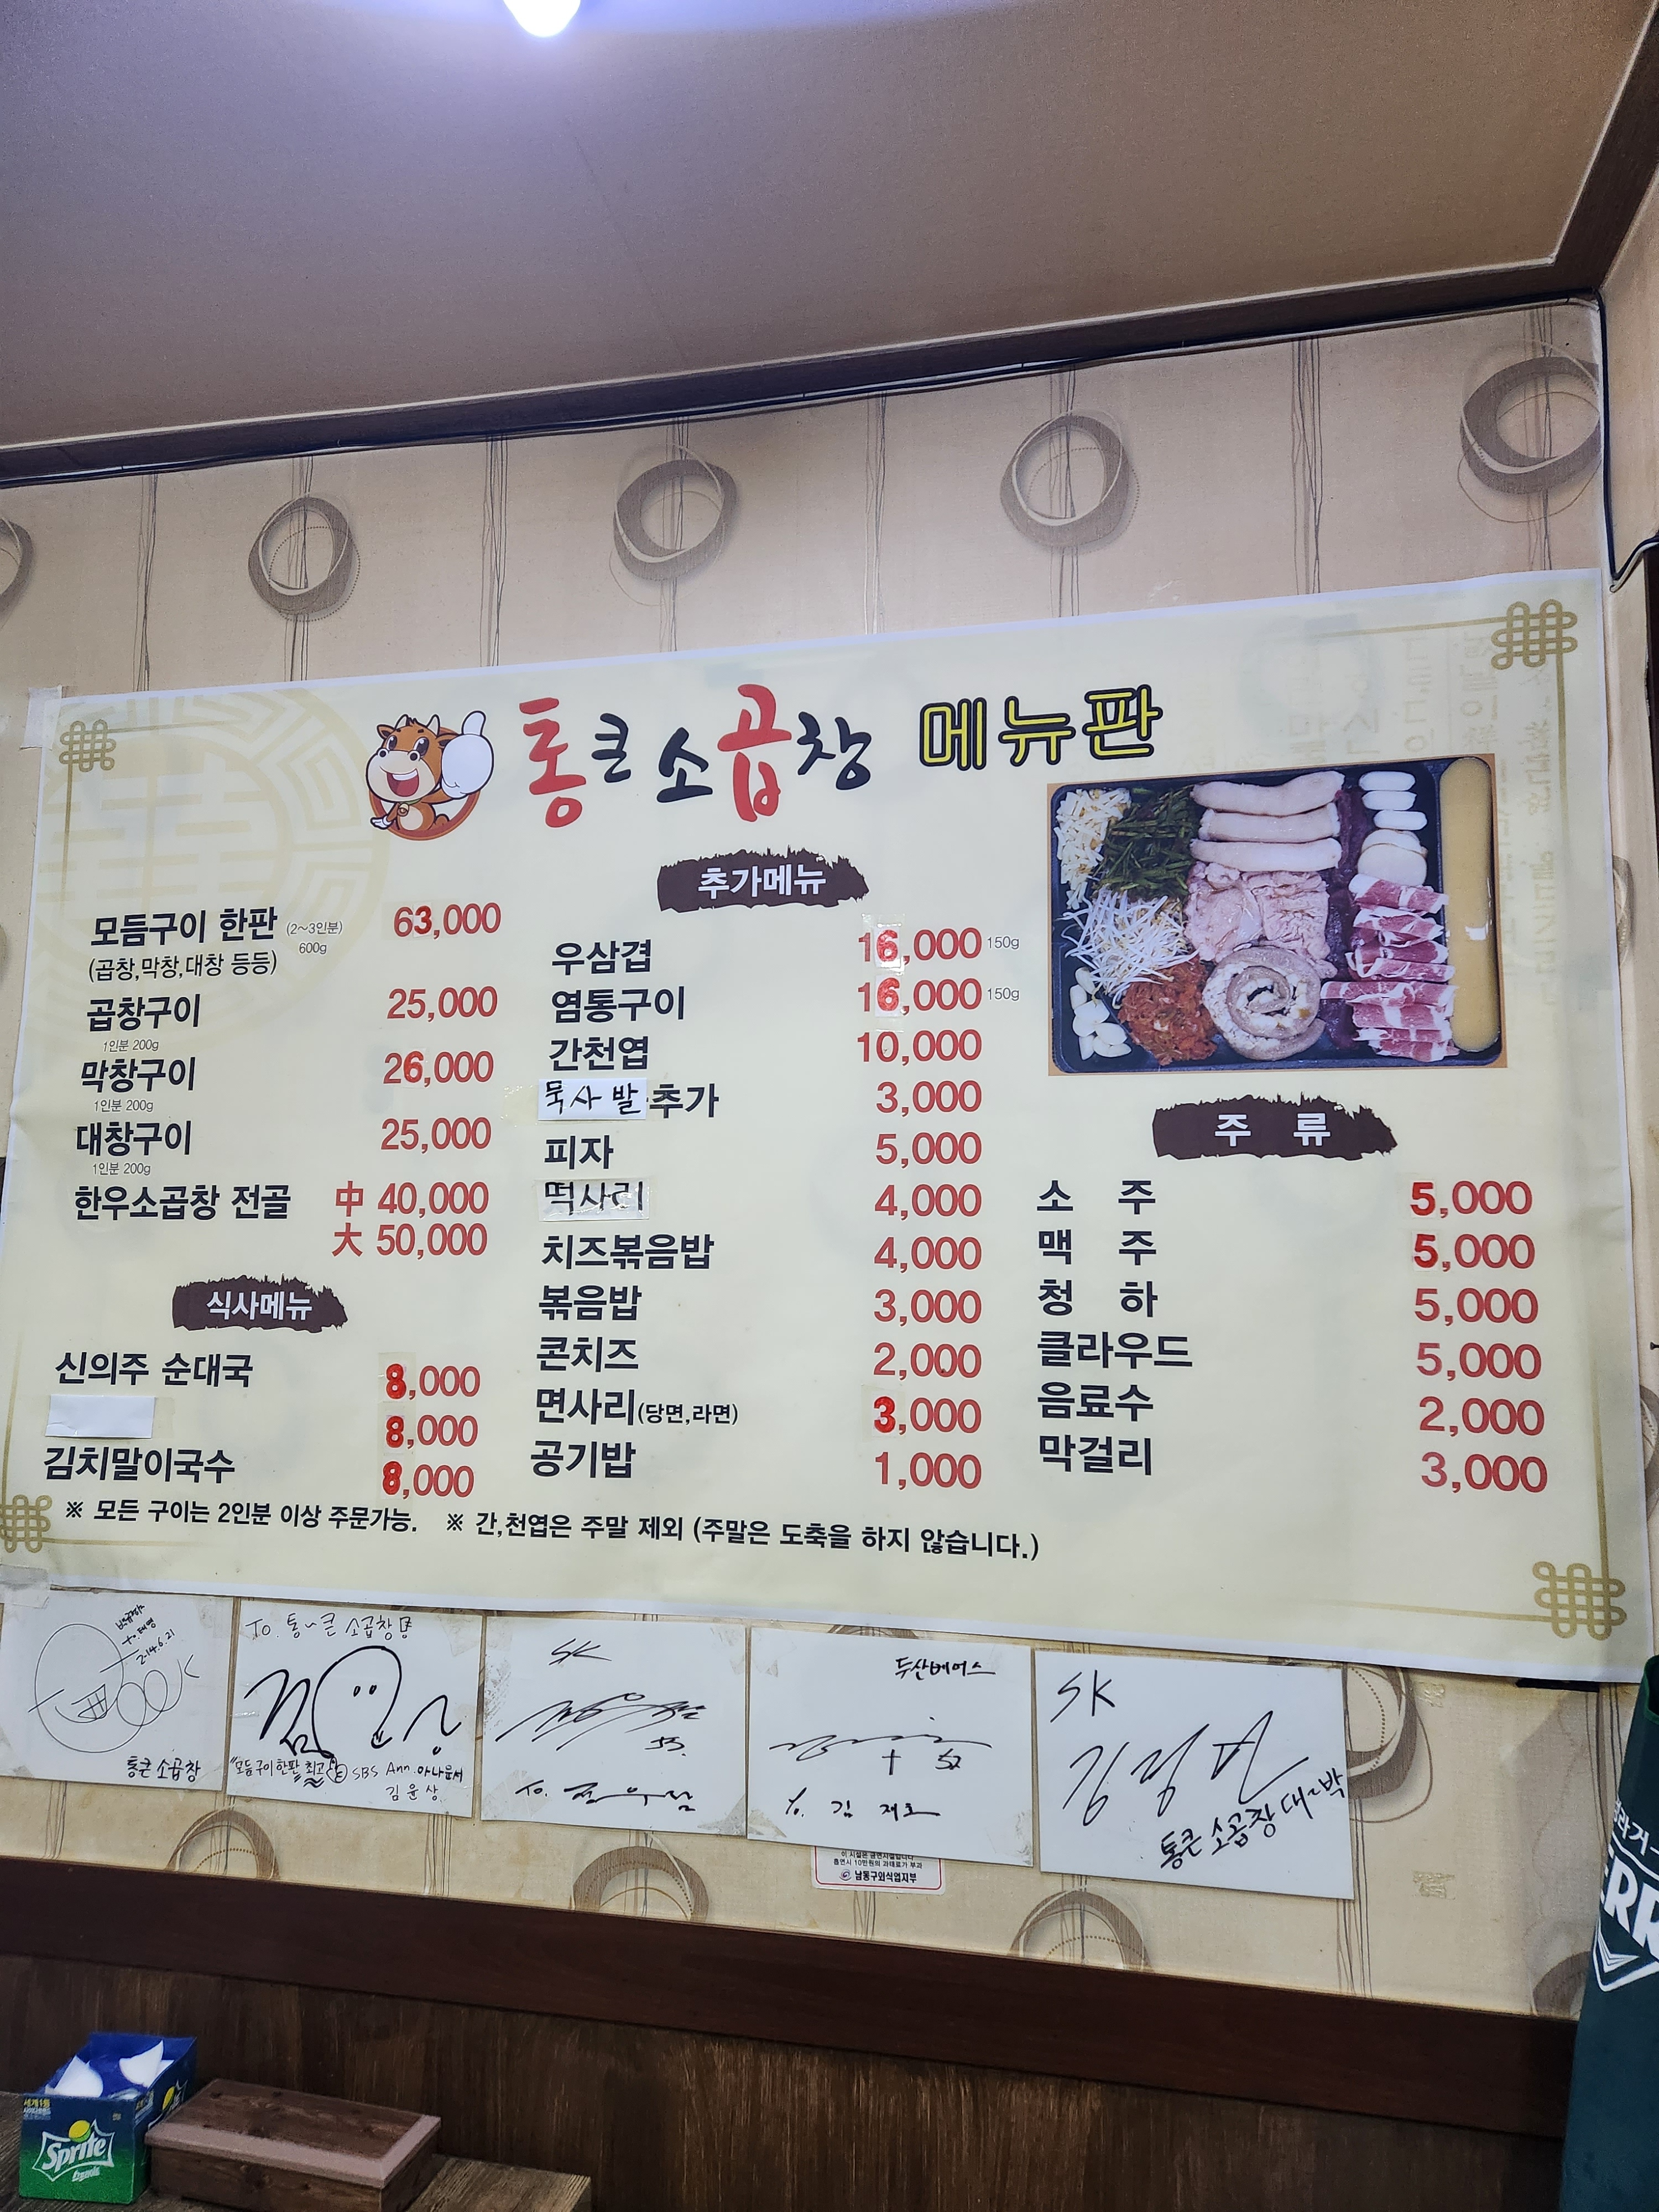 통큰소곱창 메뉴판
모듬구이 한판 (2~3인분) 600g 63,000
(곱창,막창,대창 등등)
곱창구이 25,000
1인분 200g
막창구이 26,000
1인분 200g
대창구이 25,000
1인분 200g
한우소곱창 전골 中 40,000
大 50,000
식사메뉴
신의주 순대국 8,000
8,000
김치말이국수 8,000
추가메뉴
우삼겹 16,000 150g
염통구이 16,000 150g
간천엽 10,000
묵사발 추가 3,000
피자 5,000
떡사리 4,000
치즈볶음밥 4,000
볶음밥 3,000
콘치즈 2,000
면사리(당면,라면) 3,000
공기밥 1,000
주 류
소 주 5,000
맥 주 5,000
청 하 5,000
클라우드 5,000
음료수 2,000
막걸리 3,000
※ 모든 구이는 2인분 이상 주문가능. ※ 간,천엽은 주말 제외 (주말은 도축을 하지 않습니다.)
통큰소곱창
To. 통~큰 소곱창
"모듬구이한판 최고 SBS Ann. 아나운서
김윤상
SK
To.
두산베어스
To. 김
SK
통큰 소곱창 대~박
이 시설은 금연시설입니다
흡연시 10만원의 과태료가 부과
남동구외식업지부
Sprite